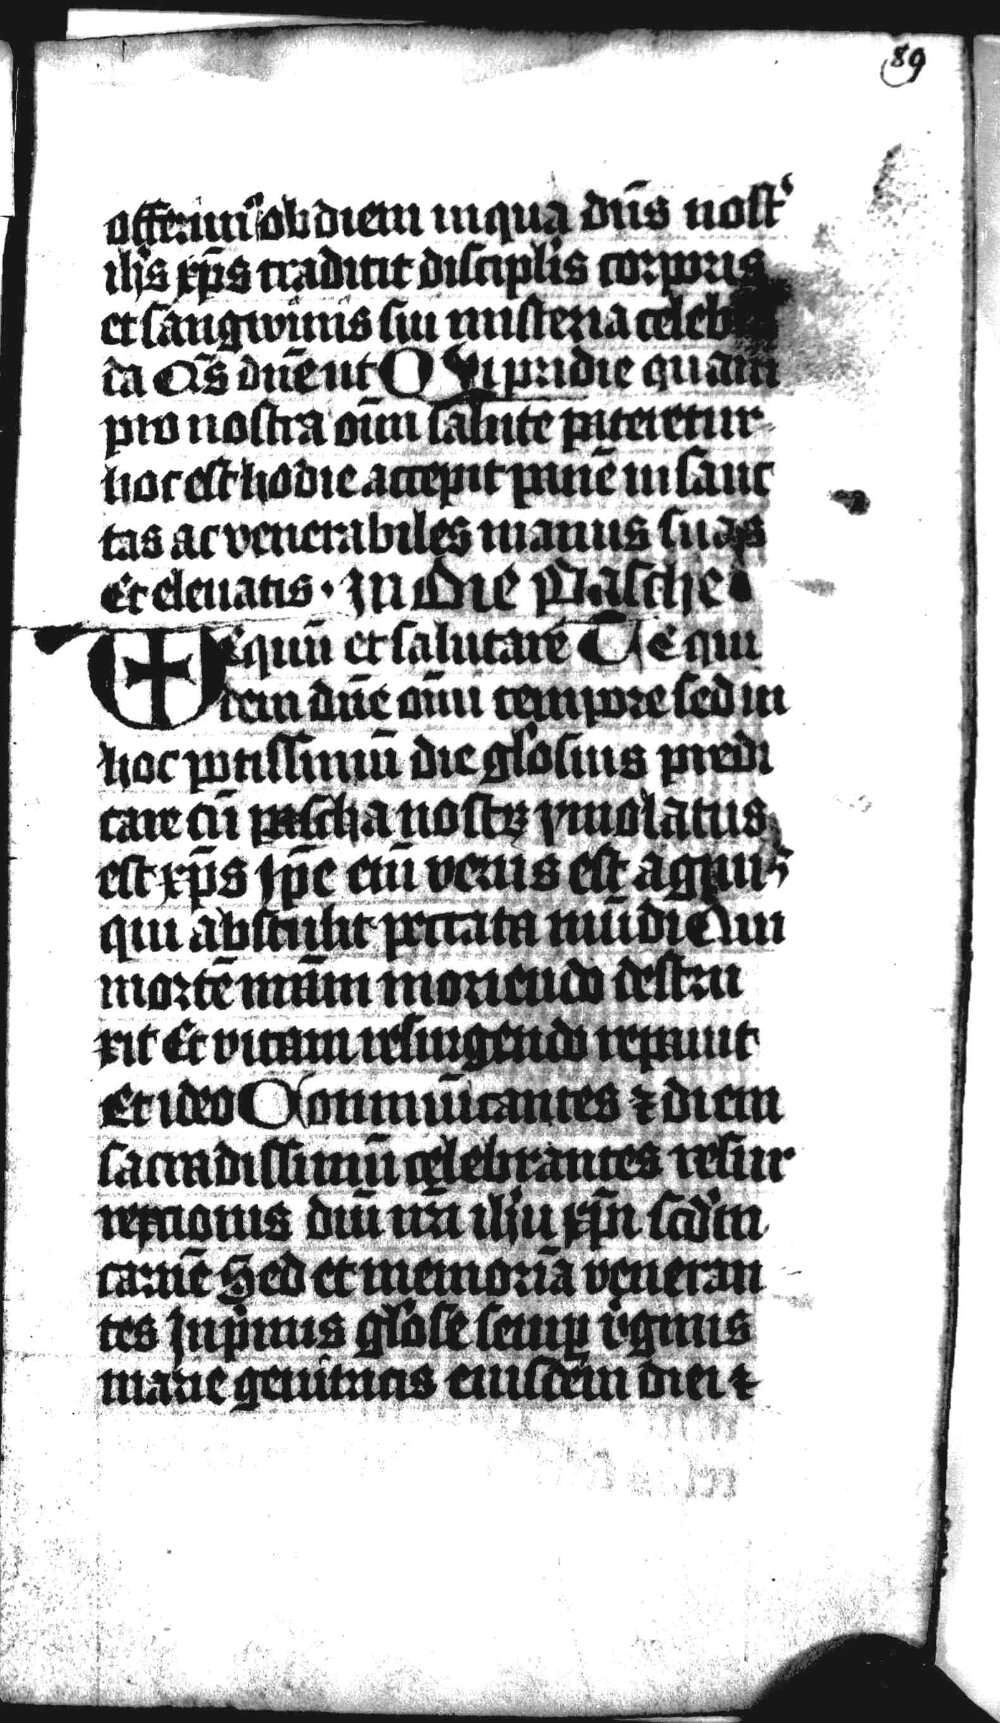 89
offerim⁹ ob diem in qua dn̄s nost᾽
ih̄s xp̄s tradidit discipl̓is corporis
et sangwinis sui misteria celeb
da Q̄s dn̄e ut Qui pridie quam
pro nostra om̄i salute pateretur
hoc est hodie accepit panē in sanc
tas ac venerabiles manus suas
Et eleuatis · In die Pasche
Equū et salutare Te qui
dem dn̄e om̄i tempore sed in
hoc potissimū die gl̓osius predi
care cū pascha nostꝝ ymolatus
est xp̄s Ip̄e em̄ verus est agnus
qui abstulit peccata mūdi Qui
mortē nr̄am moriendo destru
xit Et vitam resurgendo reparauit
Et ideo Conmūicantes ⁊ diem
sacratissimū celebrantes resur
rexionis dn̄i nr̄i ih̓u xp̄i scd̓m
carnē Sed et memoriā veneran
tes Inp̓mis gl̓ose semp v̓ginis
marie genitricis eiusdem diei ⁊